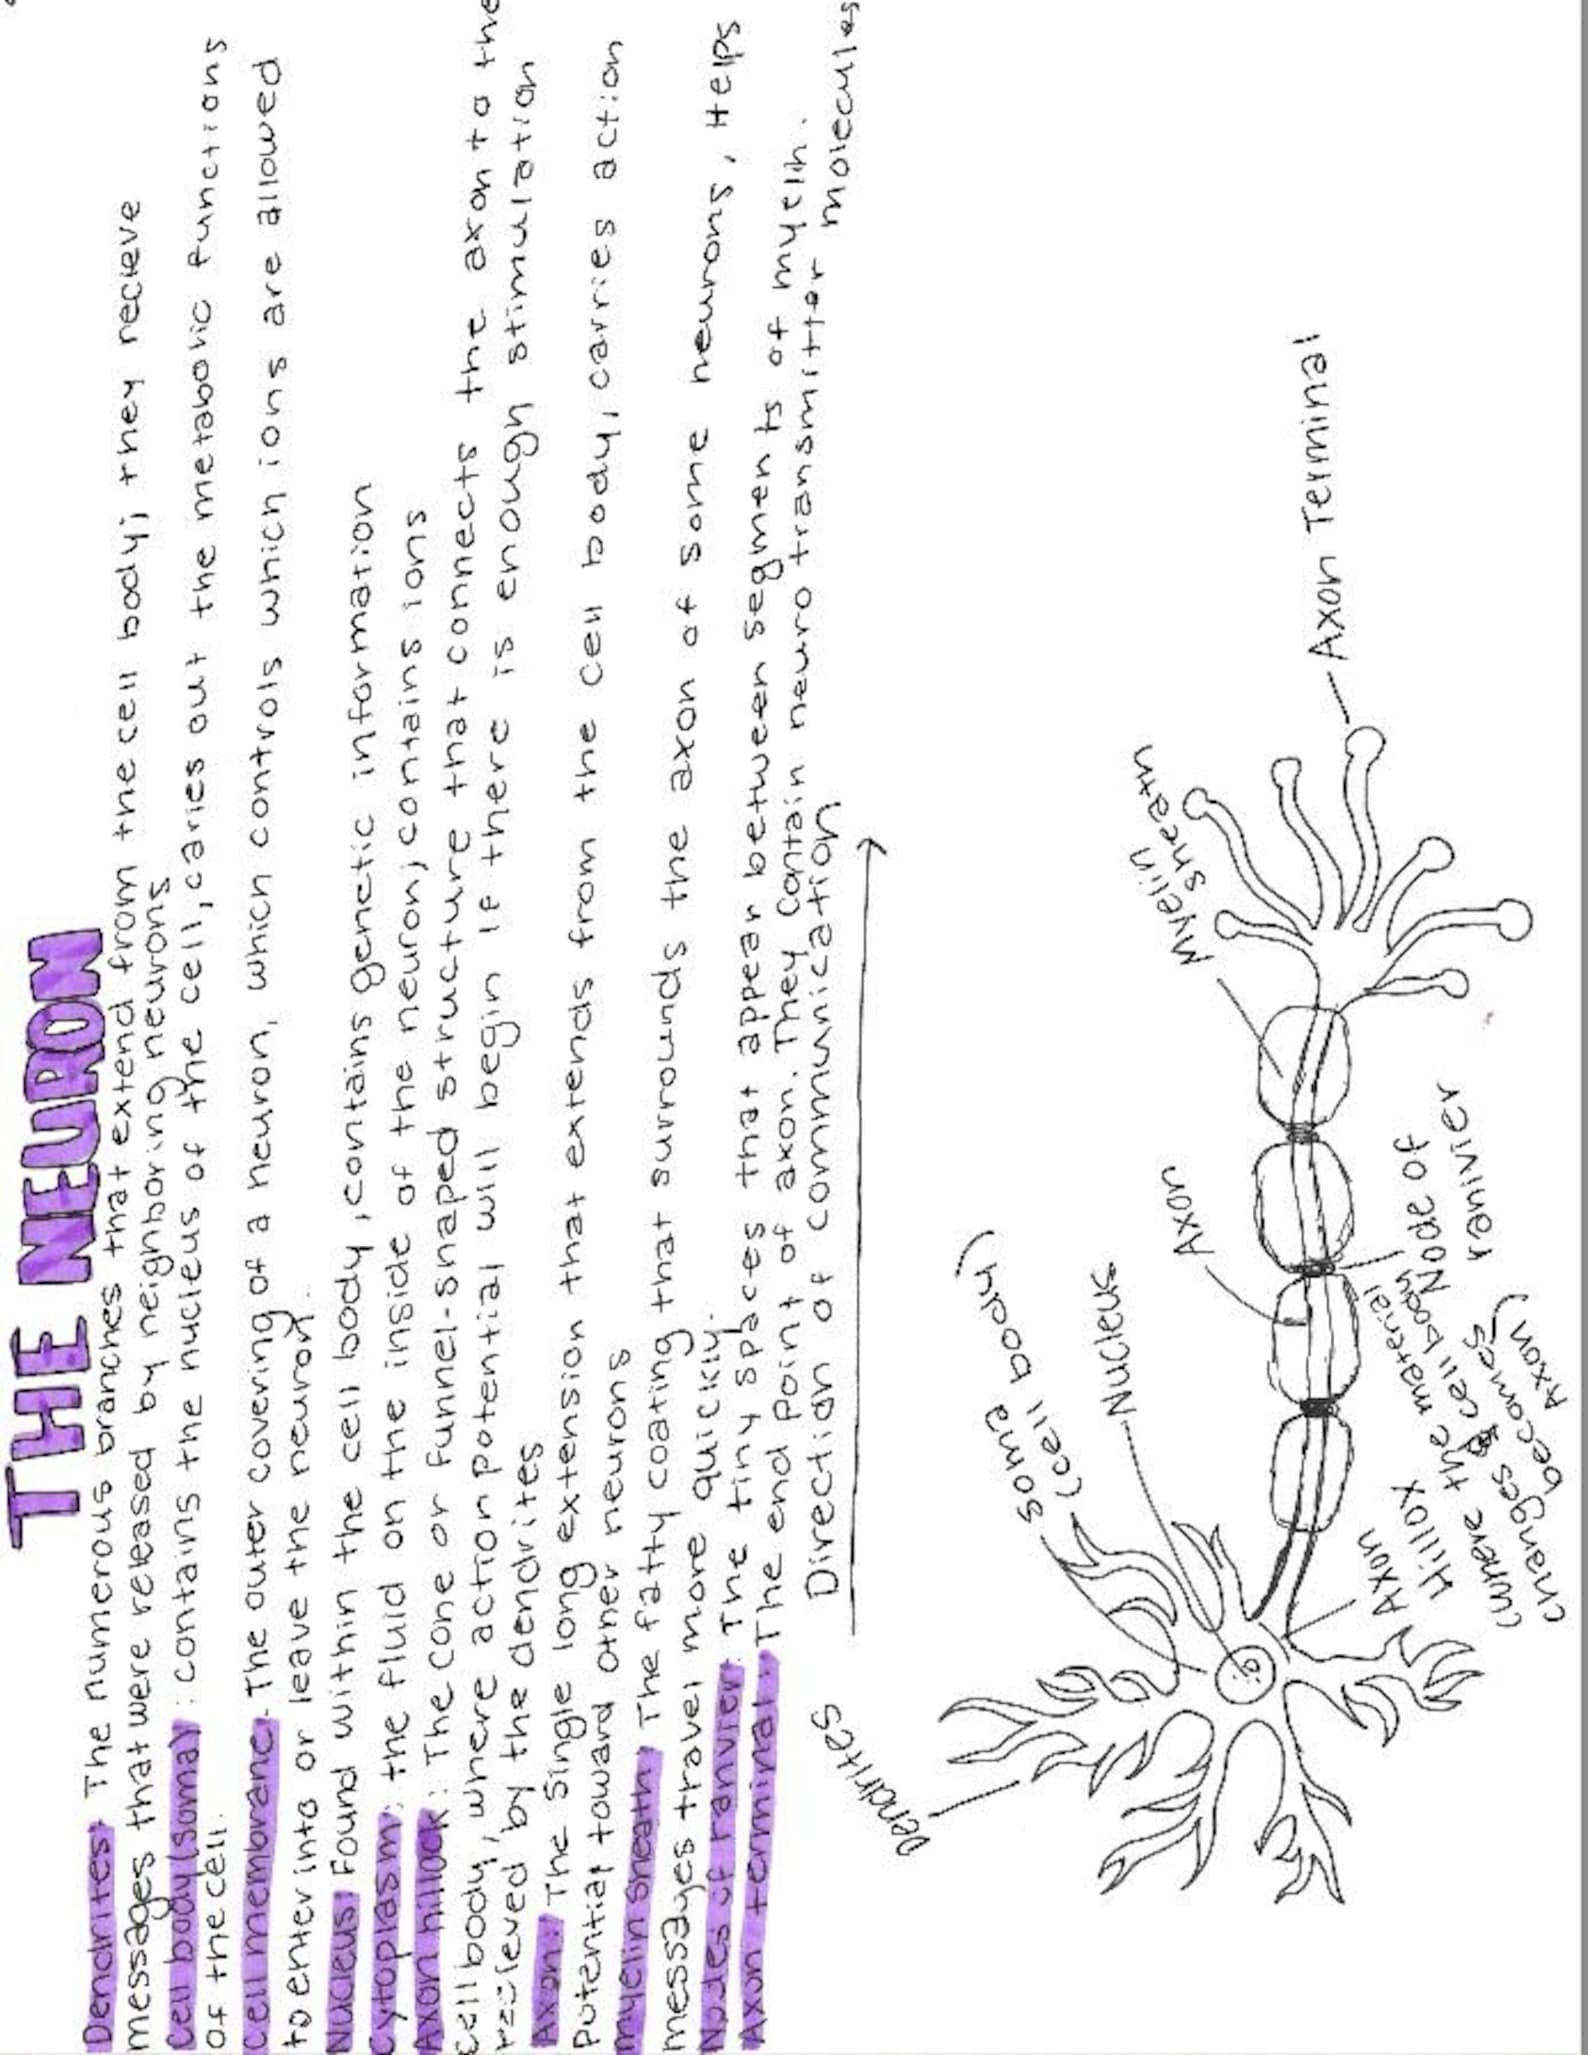 THE NEURON
Dendrites: The numerous branches that extend from the cell body; they recieve
messages that were released by neighboring neurons
Cell body (soma): contains the nucleus of the cell, caries out the metabolic functions
of the cell.
Cell membrane: The outer covering of a neuron, which controls which ions are allowed
to enter into or leave the neuron.
Nucleus: Found within the cell body, contains genetic information
Cytoplasm: the fluid on the inside of the neuron; contains ions
Axon hillock: The cone or funnel-snaped structure that connects the axon to the
cell body, where action potential will begin if there is enough stimulation
recieved by the dendrites
Axon: The single long extension that extends from the cell body, carries action
potential toward other neurons
Myelin sheath: The fatty coating that surrounds the axon of some neurons, Helps
messages travel more quickly.
Nodes of ranvier: The tiny spaces that appear between segments of myelin.
Axon terminal: The end point of axon. They contain neuro transmitter molecules
Direction of communication
Dendrites
soma
(cell body)
Nucleus
Axon
Myelin
sheath
Axon Terminal
Node of
ranvier
Axon
Hillox
(where the material
changes cell body
becomes
axon)